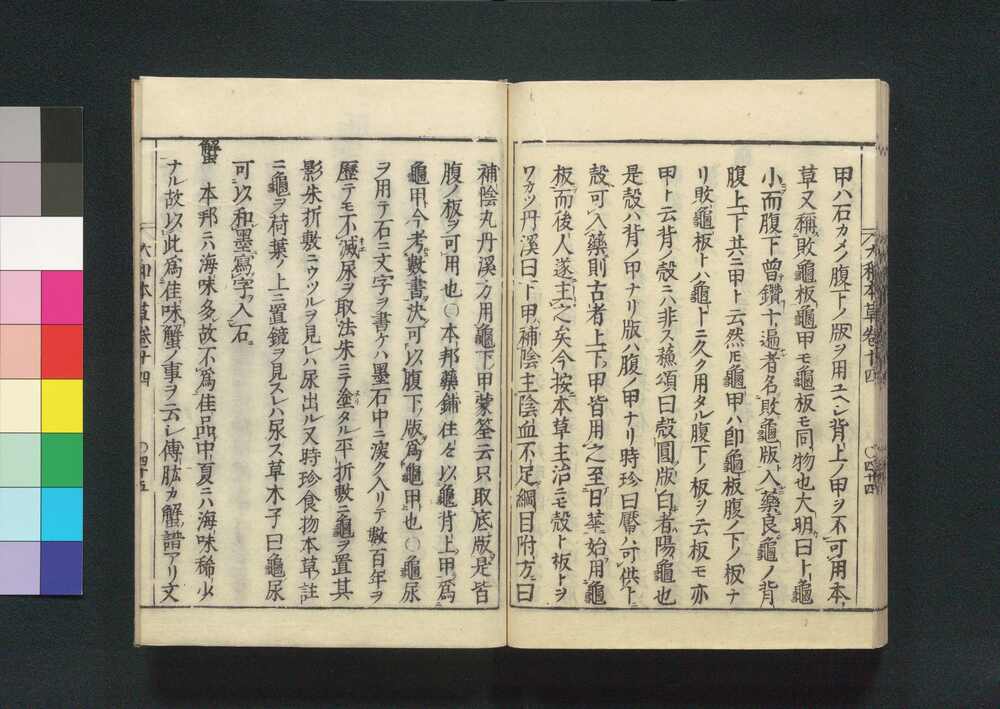 甲ハ石カメノ腹下ノ版ヲ用ユヘシ背上ノ甲ヲ不可用本
草又稱敗龜板龜甲モ龜板モ同物也大明曰卜龜
小而腹下曾鑽十遍者名敗龜版入藥良龜ノ背
腹上下共ニ甲ト云然𪜈龜甲ハ卽龜板腹ノ下ノ板ナ
リ敗龜板トハ龜卜ニ久ク用タル腹下ノ板ヲ云板モ亦
甲ト云背ノ殼ニハ非ス蘓頌曰殼圓版白者陽龜也
是殼ハ背ノ甲ナリ版ハ腹ノ甲ナリ時珍曰
可供卜
殼可入藥則古者上下甲皆用之至日華始用龜
板而後人遂主之矣今按本草主治ニモ殼ト板トヲ
ワカツ丹溪曰下甲補陰主陰血不足綱目附方曰
大和本草卷十四
〇四十四
補陰丸丹溪方用龜下甲蒙筌云只取底版是皆
腹ノ板ヲ可用也〇本邦藥鋪往々以龜背上甲爲
龜甲今考數書決可以腹下ノ版爲龜甲也〇龜尿
ヲ用テ石ニ文字ヲ書ケハ墨石中ニ深ク入リテ數百年ヲ
歷テモ不滅尿ヲ取法朱ニテ塗タル平折敷ニ龜ヲ置其
影朱折敷ニウツルヲ見レハ尿出ル又時珍食物本草註
ニ龜ヲ荷葉ノ上ニ置鏡ヲ見スレハ尿ス草木子曰龜尿
可以和墨寫字入石
蟹 本邦ニハ海味多故不爲佳品中夏ニハ海味稀少
ナル故以此爲佳味蟹ノ事ヲ云シ傳肱カ蟹譜アリ文
大和本草卷十四
〇四十五